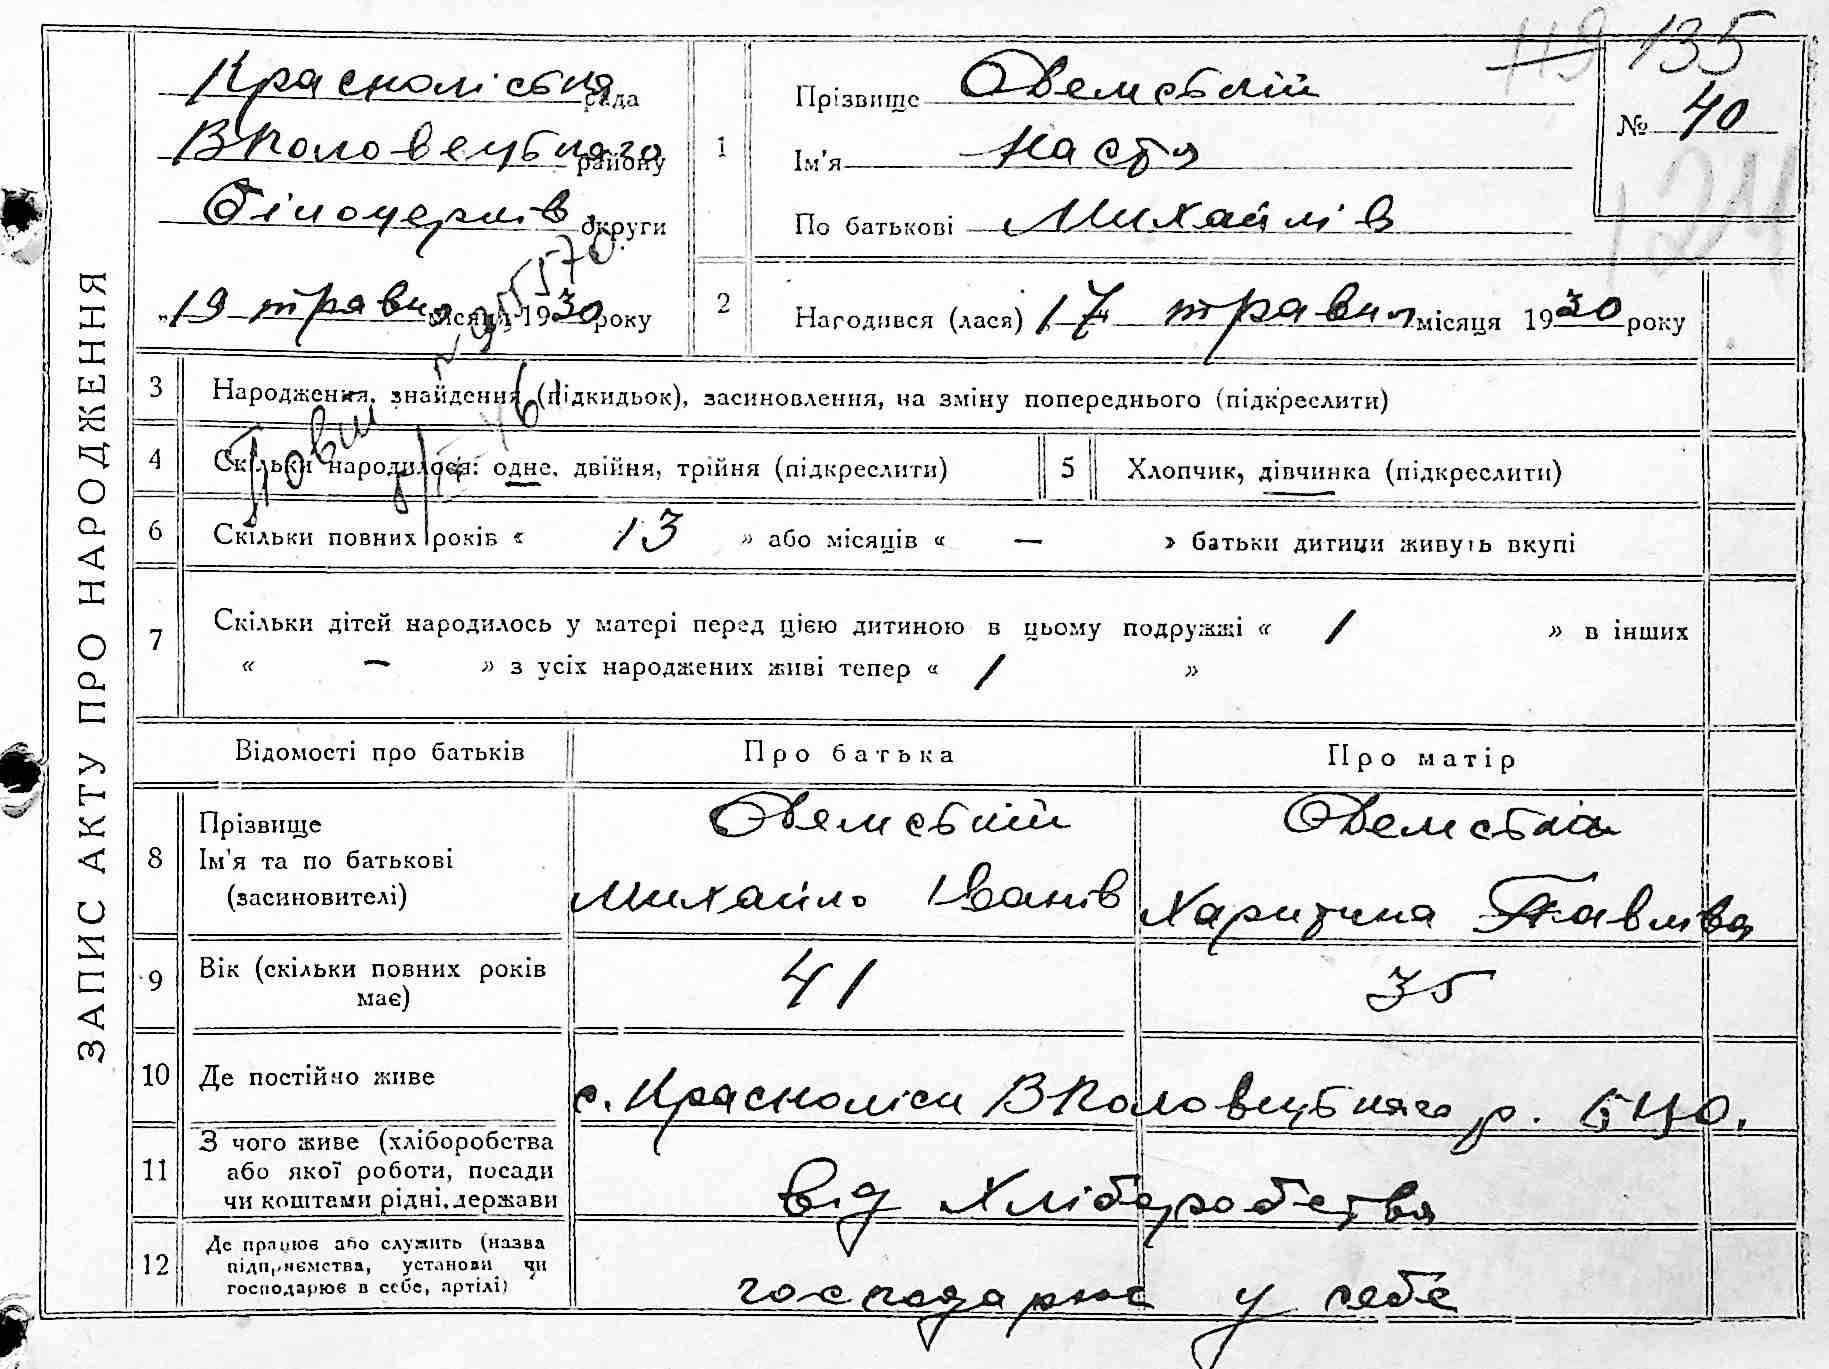 ЗАПИС АКТУ ПРО НАРОДЖЕННЯ
Краснолістка рада
ВПоловецького району
Білоцерків округи
„19 травня місяця 1930 року
119 135
№ 40
124
1 Прізвище Овемський
Ім'я Настя
По батькові Михайлів
2 Народився (лася) 17 травня місяця 1930 року
3 Народження, знайдення (підкидьок), засиновлення, на зміну попереднього (підкреслити)
4 Скільки народилося: одне, двійня, трійня (підкреслити)
5 Хлопчик, дівчинка (підкреслити)
6 Скільки повних років « 13 » або місяців « — » батьки дитини живуть вкупі
7 Скільки дітей народилось у матері перед цією дитиною в цьому подружжі « 1 » в інших
« — » з усіх народжених живі тепер « 1 »
Відомості про батьків Про батька Про матір
8 Прізвище
Ім'я та по батькові
(засиновителі)
Овемський
Михайло Іванів
Овемська
Харитина Павлівна
9 Вік (скільки повних років
має)
41 35
10 Де постійно живе с. Краснолісн ВПоловецького р. БЦО.
11 З чого живе (хліборобства
або якої роботи, посади
чи коштами рідні, держави
від хліборобства
12 Де працює або служить (назва
підприємства, установи чи
господарює в себе, артілі)
господарює у себе